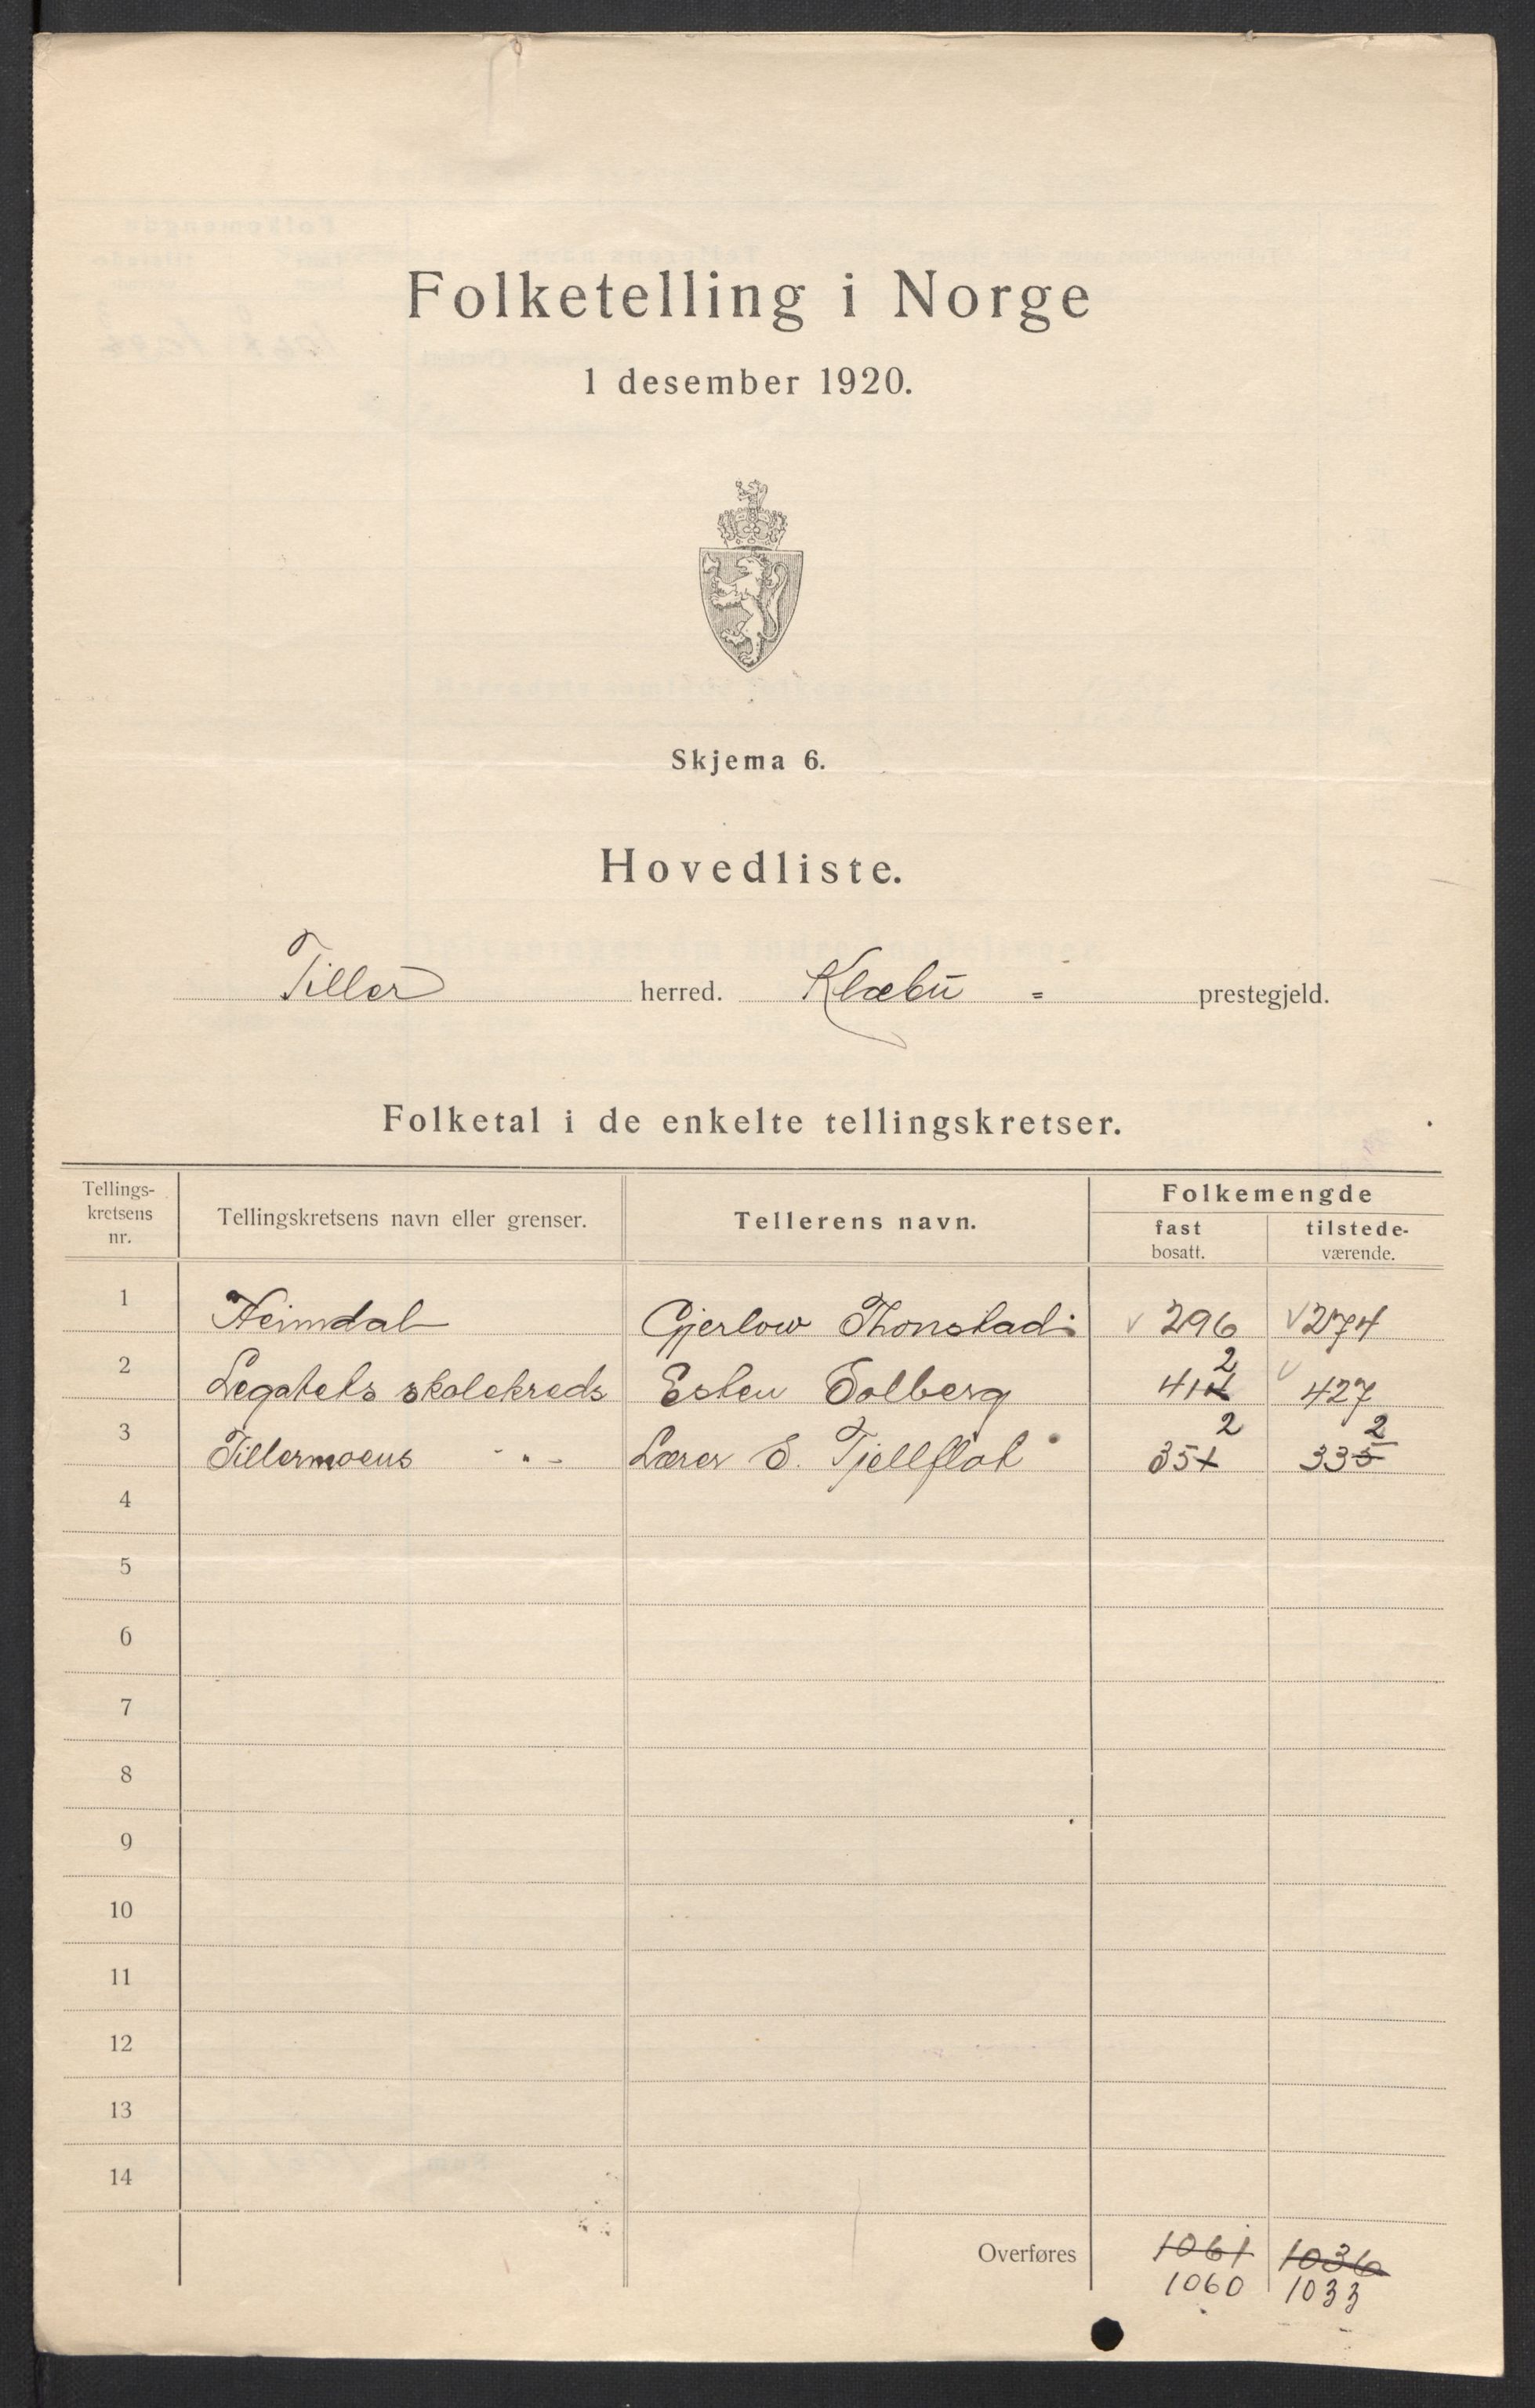 Folketelling i Norge
1 desember 1920.
Skjema 6.
Hovedliste.
Tiller herred. Klæbu = prestegjeld.
Folketal i de enkelte tellingskretser.
Tellings-
kretsens
nr.
Tellingskretsens navn eller grenser.
Tellerens navn.
Folkemengde
fast
bosatt.
tilstede-
værende.
1 Heimdal Gjerlow Thonstad 296 274
2 Legatets skolekreds Esten Solberg 412 427
3 Tillermoens -"- Lærer E. Tjellflot 352 332
4
5
6
7
8
9
10
11
12
13
14
Overføres 1061 1036
1060 1033